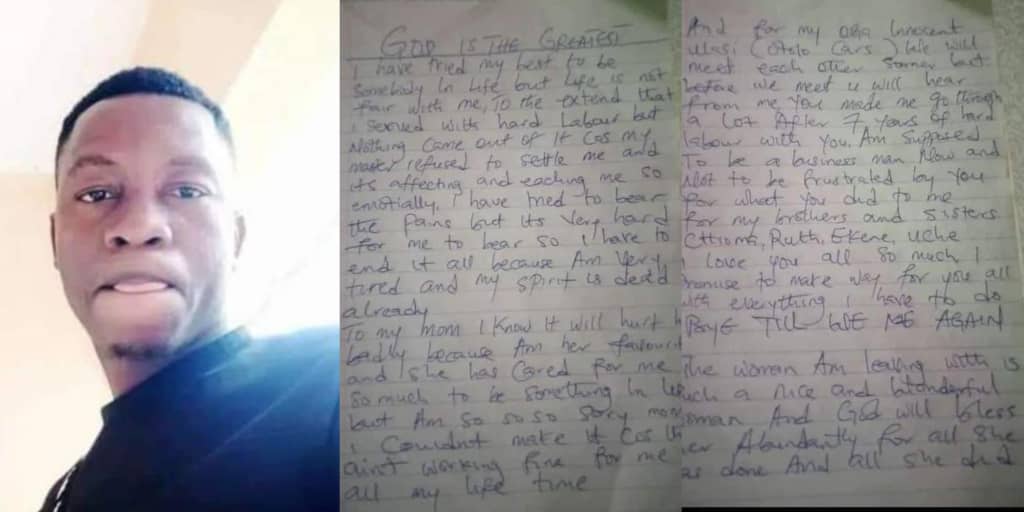 GOD IS THE GREATEST
I have tried my best to be
somebody in life but life is not
fair with me, To the extend that
i served with hard Labour but
Nothing Came out of it Cos my
master refused to settle me and
its affecting and eaching me so
emotially, I have tried to bear
the pains but its very hard
for me to bear so I have to
end it all because Am very
tired and my spirit is dead
already
To my mom I know it will hurt
badly because Am her favourit
and she has Cared for me
so much to be something in
but Am so so so sorry mom
i Couldnt make it Cos
aint working fine for me
all my life time
And for my oga Innocent
Ulasi (Otelo Cars) We will
meet each other sooner but
before we meet u will hear
from me You made me go through
a lot After 7 years of hard
labour with you. Am supposed
To be a business man Now and
Not to be frustrated by you
for what you did to me
for my brothers and sisters
Chioma, Ruth, Ekene, Uche
I Love you all so much I
promise to make way for you all
with everything I have to do
BYE TILL WE ME AGAIN
The woman Am leaving with is
such a nice and wonderful
woman And God will bless
her Abundantly for all she
as done And all she did